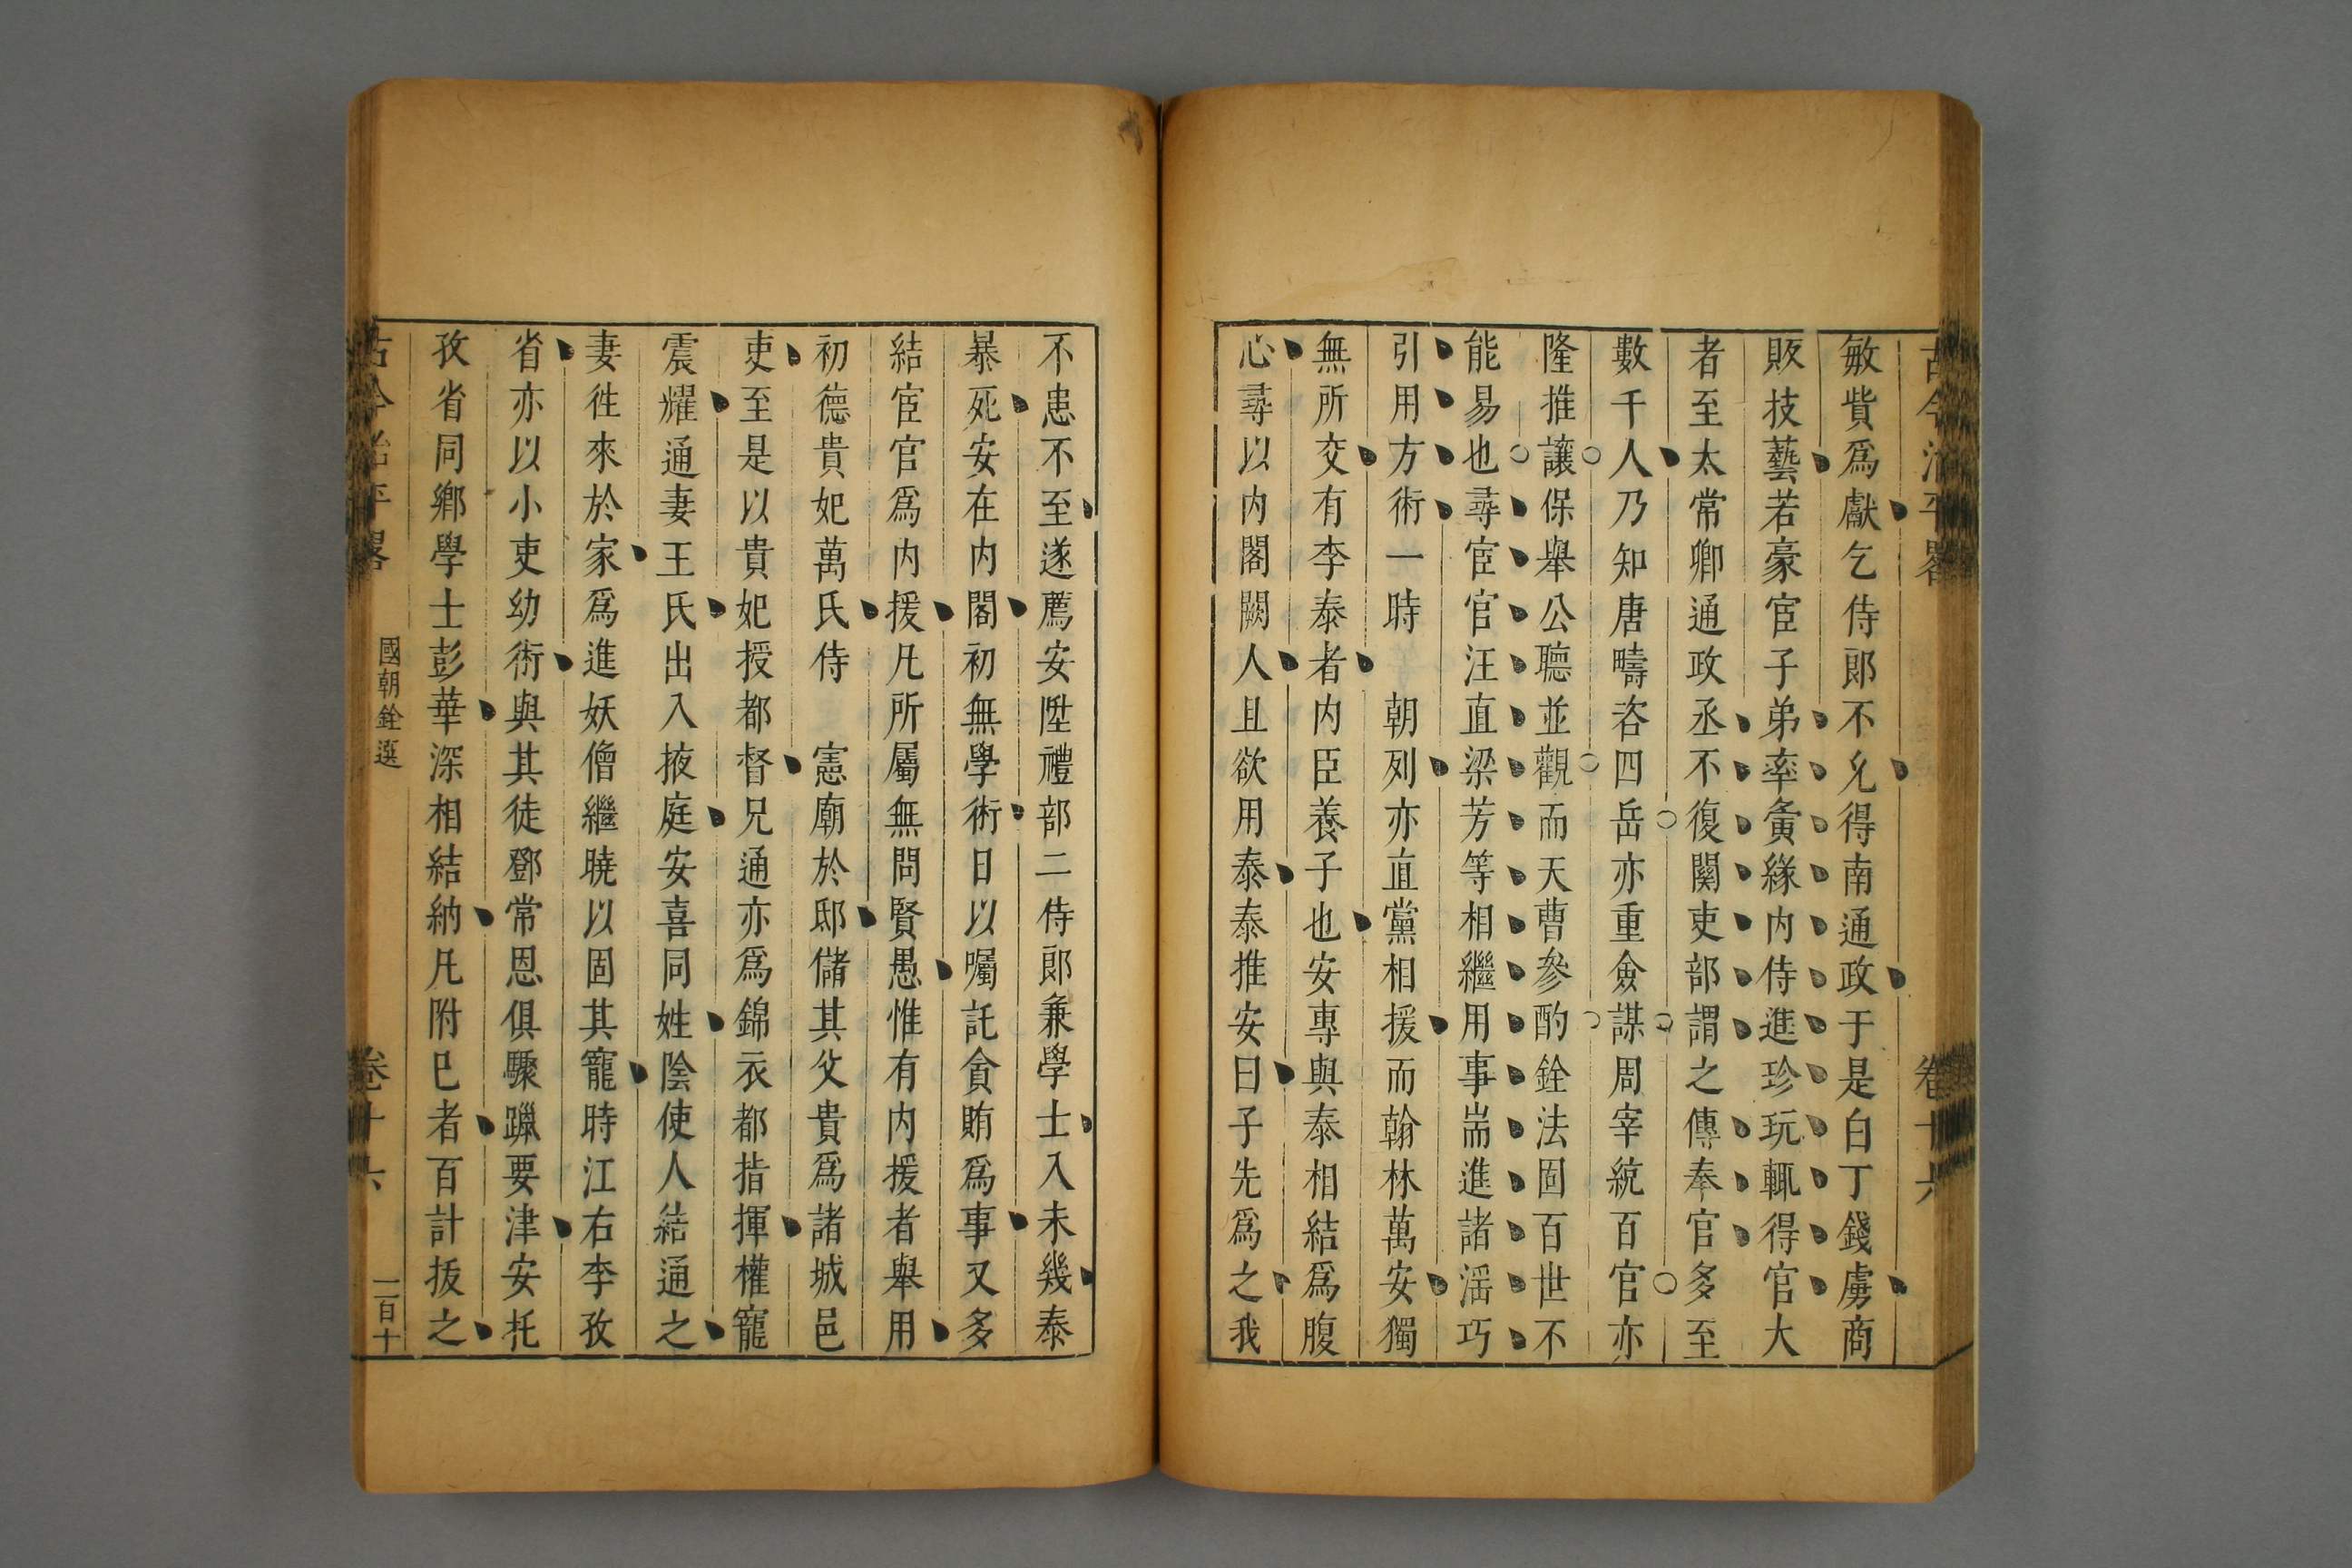 古今治平畧 卷十六
敏貲爲獻乞侍郎不允得南通政于是白丁錢虜商
販技藝若豪宦子弟率夤緣内侍進珍玩輒得官大
者至太常卿通政丞不復關吏部謂之傳奉官多至
數千人乃知唐疇咨四岳亦重僉謀周宰統百官亦
隆推讓保舉公聽並觀而天曹參酌銓法固百世不
能易也尋宦官汪直梁芳等相繼用事耑進諸滛巧
引用方術一時 朝列亦直黨相援而翰林萬安獨
無所交有李泰者内臣養子也安專與泰相結爲腹
心尋以内閣闕人且欲用泰泰推安曰子先爲之我
不患不至遂薦安陞禮部二侍郎兼學士入未幾泰
暴死安在内閣初無學術日以囑託貪賄爲事又多
結宦官爲内援凡所屬無問賢愚惟有内援者舉用
初德貴妃萬氏侍 憲廟於邸儲其父貴爲諸城邑
吏至是以貴妃授都督兄通亦爲錦衣都指揮權寵
震耀通妻王氏出入掖庭安喜同姓陰使人結通之
妻徃來於家爲進妖僧繼曉以固其寵時江右李孜
省亦以小吏幼術與其徒鄧常恩俱驟躐要津安托
孜省同鄉學士彭華深相結納凡附巳者百計扳之
古今治平畧 國朝銓選 卷十六 二百十